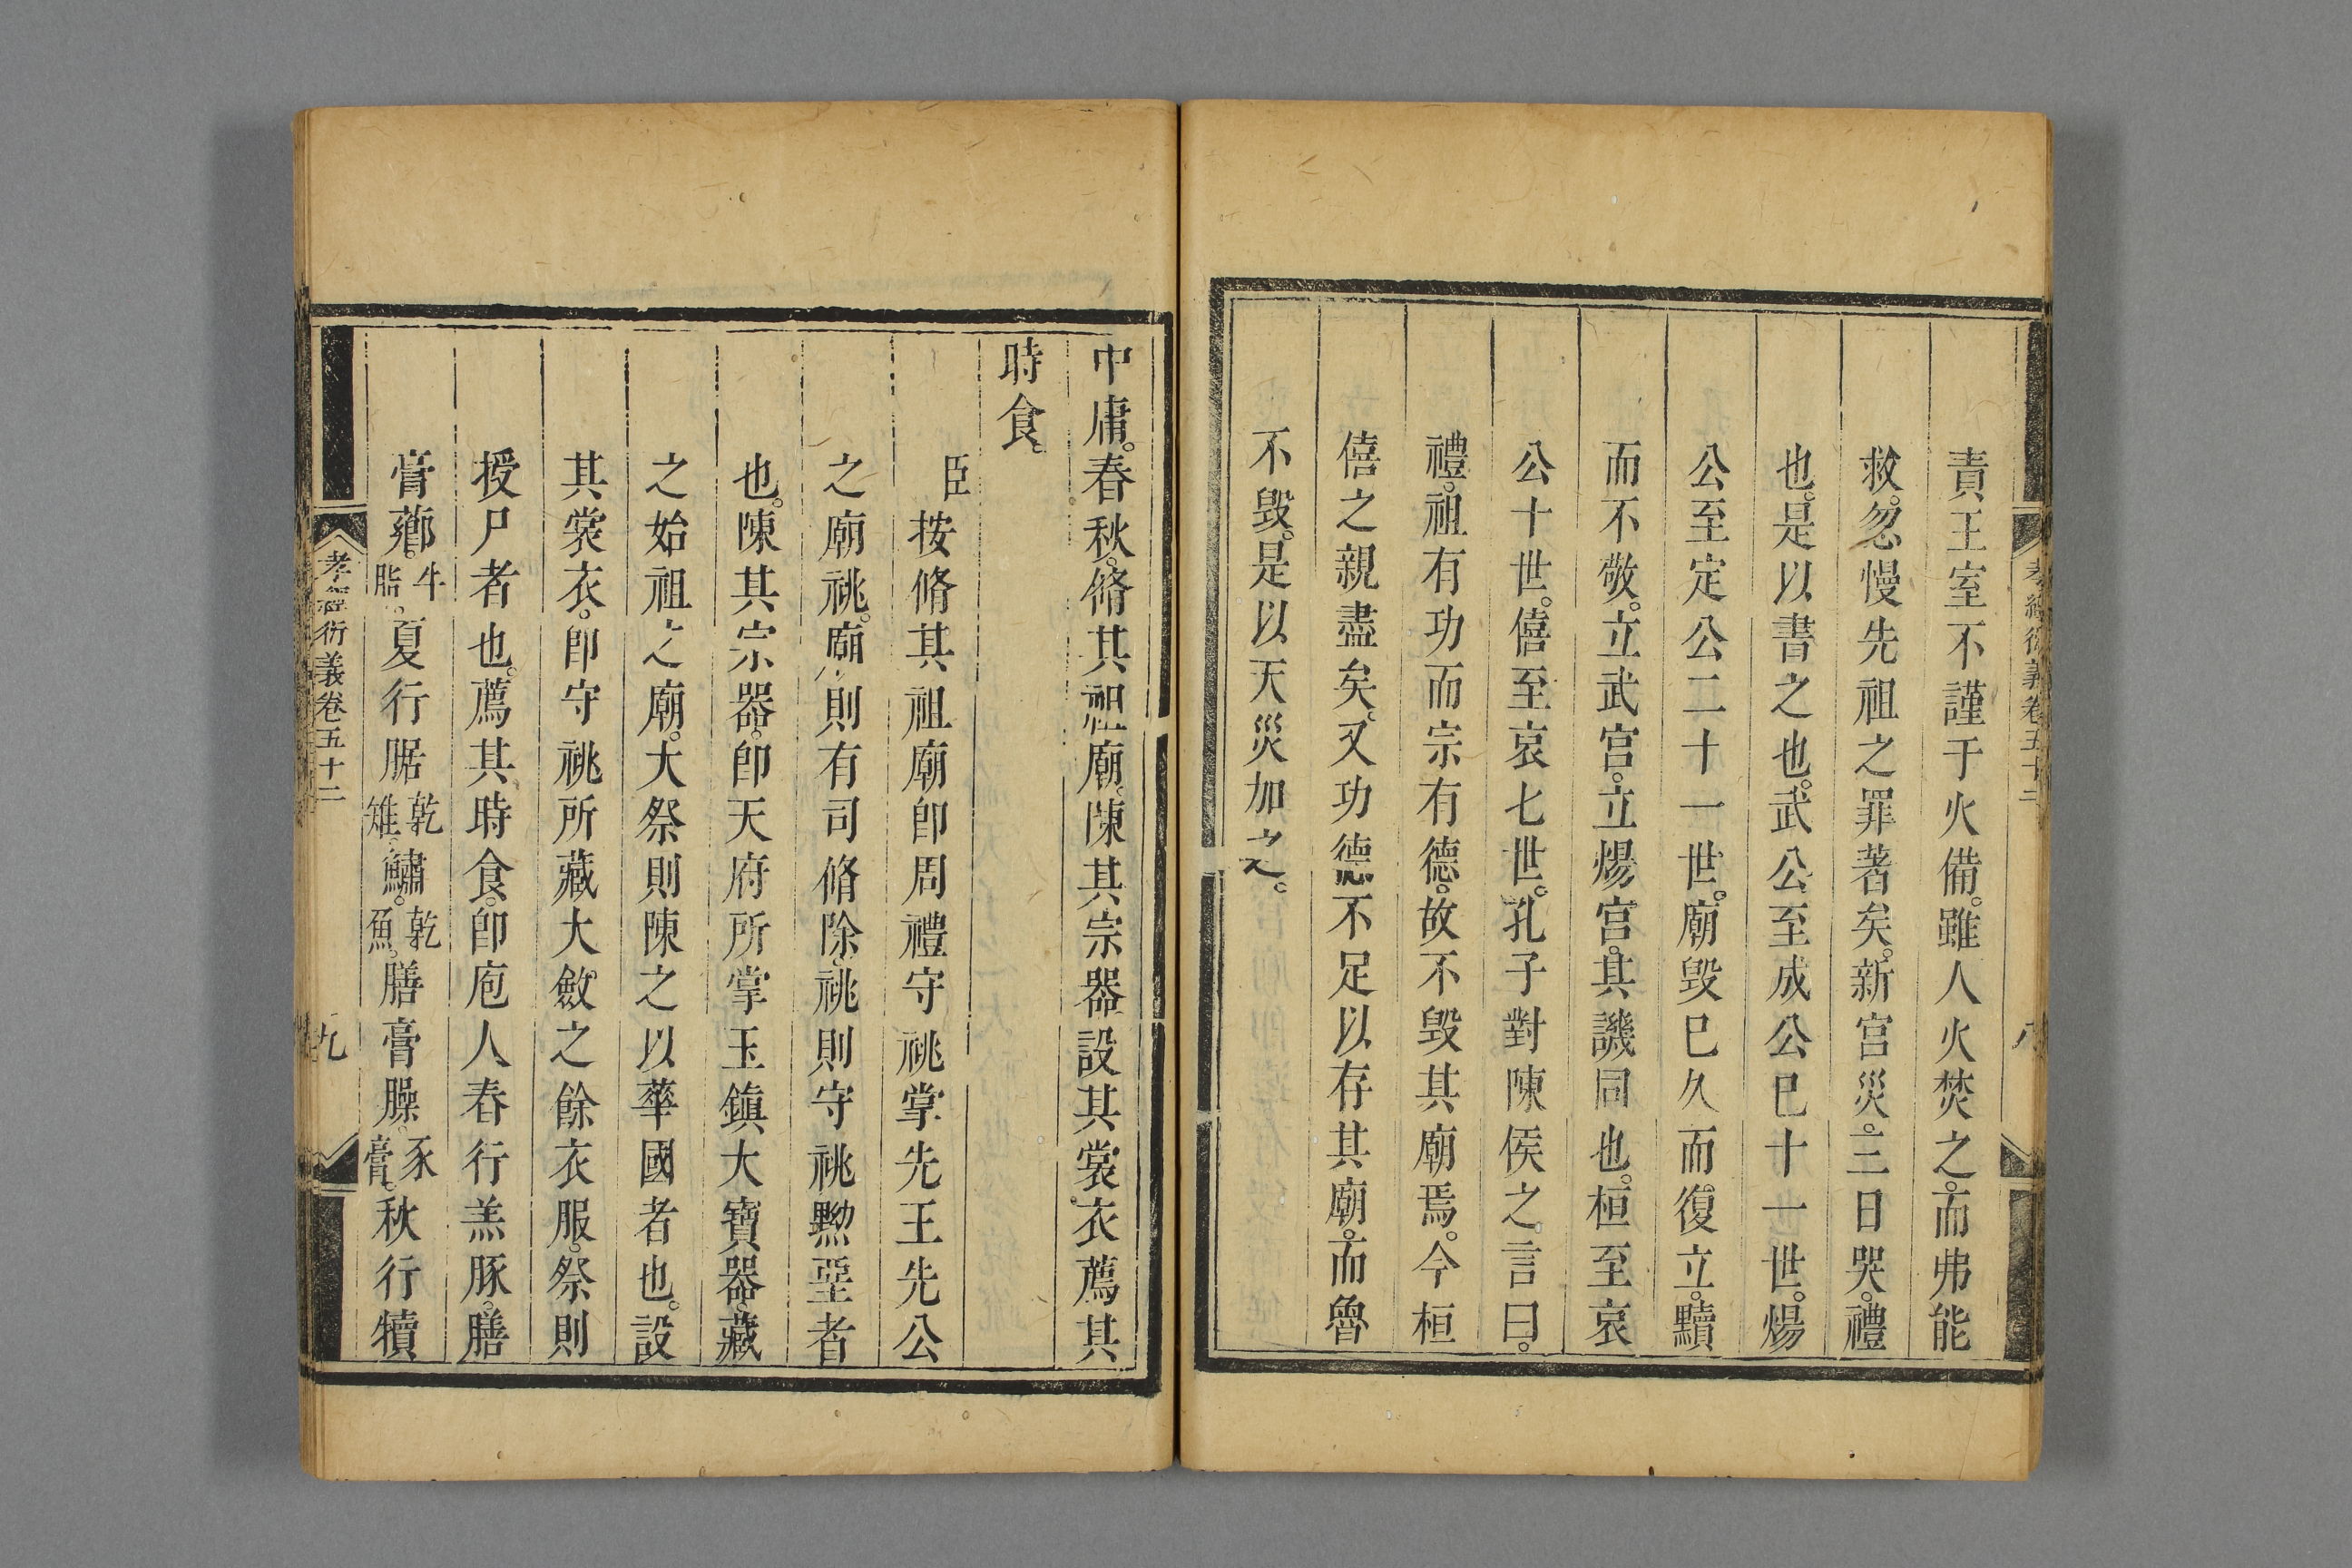 孝經衍義卷五十二
八
責王室不謹于火備。雖人火焚之。而弗能
救。忽慢先祖之罪著矣。新宮災。三日哭。禮
也。是以書之也。武公至成公巳十一世。煬
公至定公二十一世。廟毀巳久而復立。黷
而不敬。立武宮。立煬宮。其譏同也。桓至哀
公十世。僖至哀七世。孔子對陳侯之言曰。
禮。祖有功而宗有德。故不毀其廟焉。今桓
僖之親盡矣。又功德不足以存其廟。而魯
不毀。是以天災加之。
中庸。春秋。脩其祖廟。陳其宗器。設其裳衣。薦其
時食。
臣按脩其祖廟。卽周禮守祧掌先王先公
之廟祧。廟則有司脩除。祧則守祧黝堊者
也。陳其宗器。卽天府所掌玉鎮大寶器。藏
之始祖之廟。大祭則陳之以華國者也。設
其裳衣。卽守祧所藏大斂之餘衣服。祭則
授尸者也。薦其時食。卽庖人春行羔豚。膳
膏薌。牛脂。夏行腒乾雉鱐。乾魚。膳膏臊。豕膏。秋行犢
孝經衍義卷五十二
九